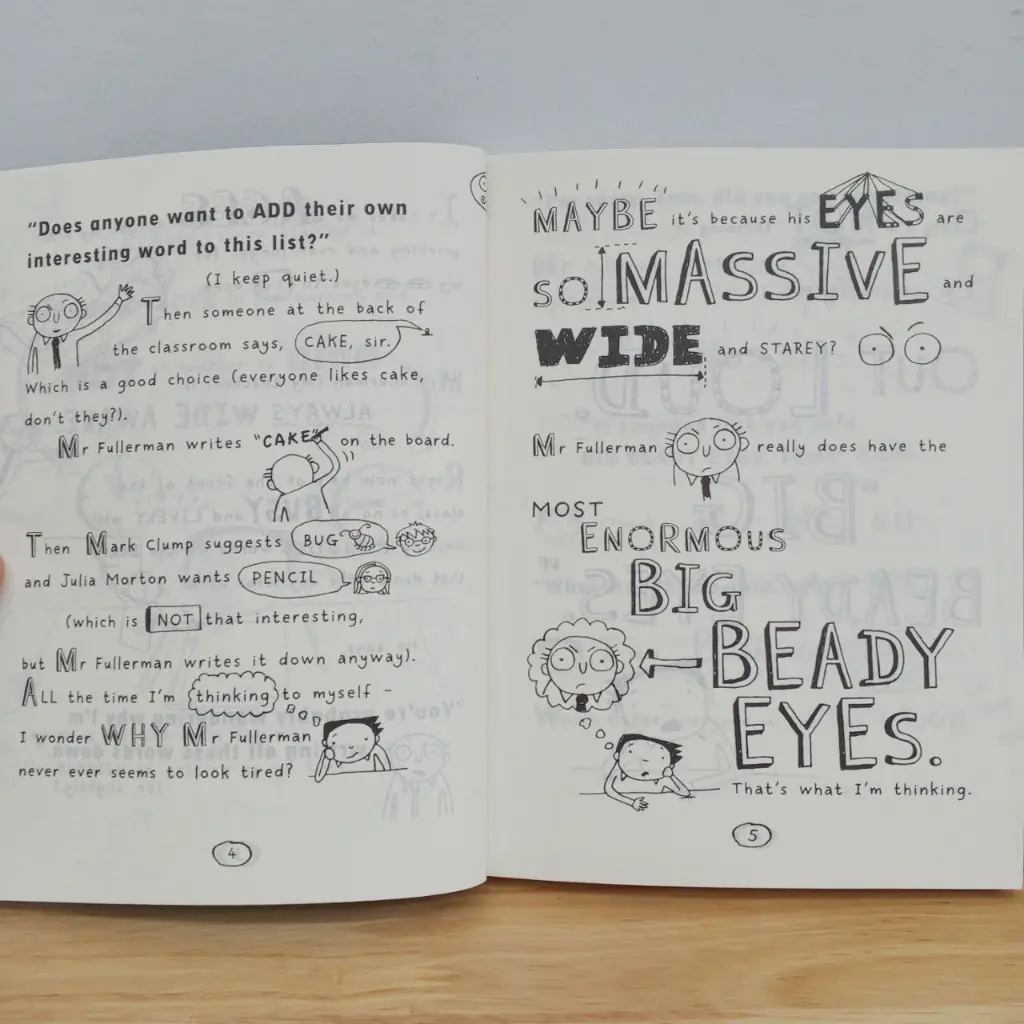 "Does anyone want to ADD their own
interesting word to this list?"
(I keep quiet.)
Then someone at the back of
the classroom says, CAKE, sir.
Which is a good choice (everyone likes cake,
don't they?).
Mr Fullerman writes "CAKE" on the board.
Then Mark Clump suggests BUG
and Julia Morton wants PENCIL
(which is NOT that interesting,
but Mr Fullerman writes it down anyway).
ALL the time I'm thinking to myself –
I wonder WHY Mr Fullerman
never ever seems to look tired?
4
MAYBE it's because his EYES are
SO MASSIVE and
WIDE and STAREY?
Mr Fullerman really does have the
MOST
ENORMOUS
BIG
BEADY
EYES.
That's what I'm thinking.
5